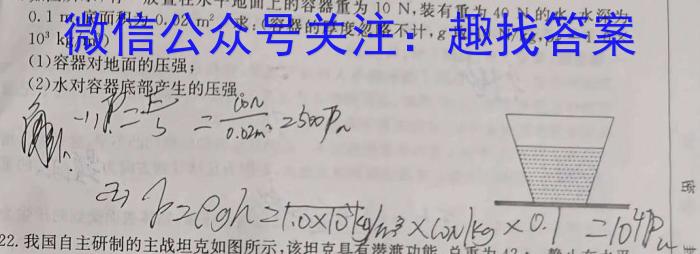 放置在水平地面上的容器重为10 N,装有重为40 N的水,水深为
0.1 m,底面积为0.02 m²,求:(容器的厚度忽略不计,g
10³ kg
微信公众号关注:趣找答案
(1)容器对地面的压强;
(2)水对容器底部产生的压强。
解 (1) P=F/S = 60N/0.02m² = 2500Pa
(2) P=ρgh=1.0×10³kg/m³×10N/kg×0.1=10⁴Pa
22.我国自主研制的主战坦克如图所示,该坦克具有潜渡功能,总重为42